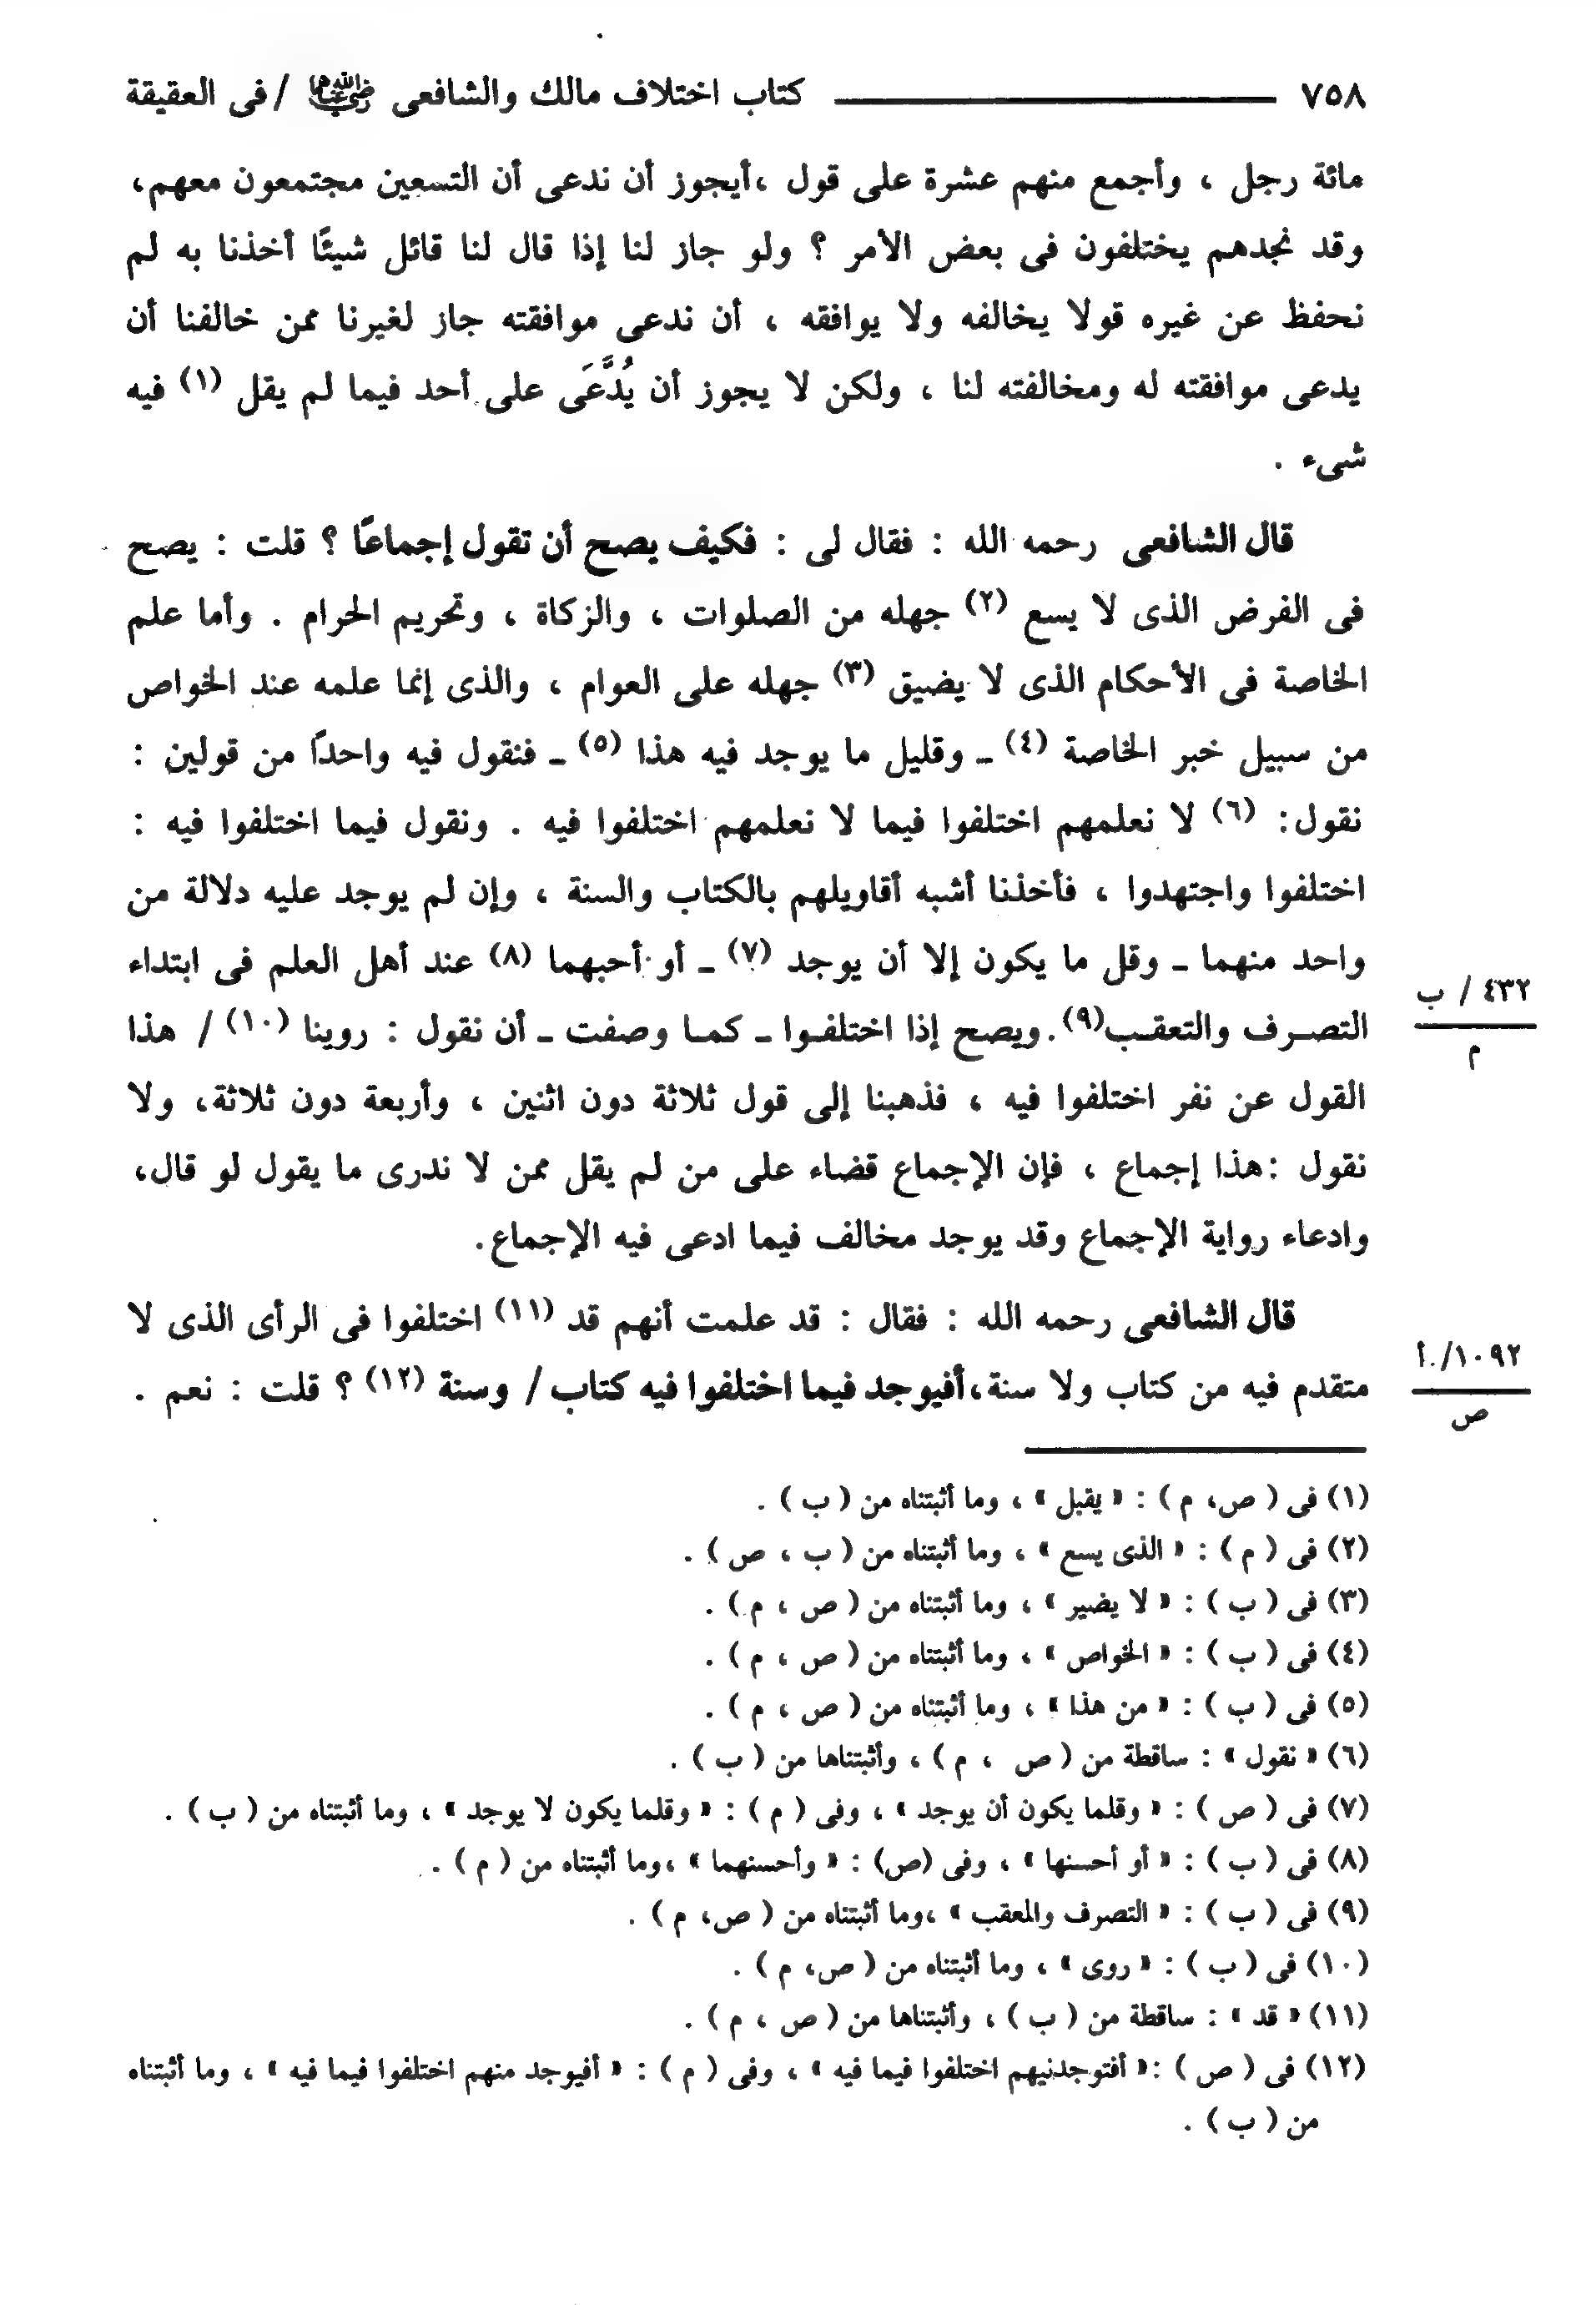 ٧٥٨ كتاب اختلاف مالك والشافعى رضي الله عنهما / فى العقيقة
مائة رجل ، وأجمع منهم عشرة على قول ،أيجوز أن ندعى أن التسعين مجتمعون معهم،
وقد نجدهم يختلفون فى بعض الأمر ؟ ولو جاز لنا إذا قال لنا قائل شيئًا أخذنا به لم
نحفظ عن غيره قولا يخالفه ولا يوافقه ، أن ندعى موافقته جاز لغيرنا ممن خالفنا أن
يدعى موافقته له ومخالفته لنا ، ولكن لا يجوز أن يُدَّعَى على أحد فيما لم يقل (١) فيه
شىء .
قال الشافعى رحمه الله : فقال لى : فكيف يصح أن تقول إجماعًا ؟ قلت : يصح
فى الفرض الذى لا يسع (٢) جهله من الصلوات ، والزكاة ، وتحريم الحرام . وأما علم
الخاصة فى الأحكام الذى لا يضيق (٣) جهله على العوام ، والذى إنما علمه عند الخواص
من سبيل خبر الخاصة (٤) ـ وقليل ما يوجد فيه هذا (٥) ـ فنقول فيه واحدًا من قولين :
نقول: (٦) لا نعلمهم اختلفوا فيما لا نعلمهم اختلفوا فيه . ونقول فيما اختلفوا فيه :
اختلفوا واجتهدوا ، فأخذنا أشبه أقاويلهم بالكتاب والسنة ، وإن لم يوجد عليه دلالة من
واحد منهما ـ وقل ما يكون إلا أن يوجد (٧) ـ أو أحبهما (٨) عند أهل العلم فى ابتداء
٤٣٢ / ب
التصـرف والتعقـب(٩).ويصح إذا اختلفـوا ـ كمـا وصفت ـ أن نقول : روينا (١٠) / هذا
م
القول عن نفر اختلفوا فيه ، فذهبنا إلى قول ثلاثة دون اثنين ، وأربعة دون ثلاثة، ولا
نقول :هذا إجماع ، فإن الإجماع قضاء على من لم يقل ممن لا ندرى ما يقول لو قال،
وادعاء رواية الإجماع وقد يوجد مخالف فيما ادعى فيه الإجماع.
قال الشافعى رحمه الله : فقال : قد علمت أنهم قد (١١) اختلفوا فى الرأى الذى لا
١٠٩٢/ أ
متقدم فيه من كتاب ولا سنة،أفيوجد فيما اختلفوا فيه كتاب / وسنة (١٢) ؟ قلت : نعم .
ص
(١) فى ( ص، م ) : « يقبل » ، وما أثبتناه من ( ب ) .
(٢) فى ( م ) : « الذى يسع » ، وما أثبتناه من ( ب ، ص ) .
(٣) فى ( ب ) : « لا يضير » ، وما أثبتناه من ( ص ، م ) .
(٤) فى ( ب ) : « الخواص » ، وما أثبتناه من ( ص ، م ) .
(٥) فى ( ب ) : « من هذا » ، وما أثبتناه من ( ص ، م ) .
(٦) « نقول » : ساقطة من ( ص ، م ) ، وأثبتناها من ( ب ) .
(٧) فى ( ص ) : « وقلما يكون أن يوجد » ، وفى ( م ) : « وقلما يكون لا يوجد » ، وما أثبتناه من ( ب ) .
(٨) فى ( ب ) : « أو أحسنها » ، وفى (ص) : « وأحسنهما » ،وما أثبتناه من ( م ) .
(٩) فى ( ب ) : « التصرف والمعقب » ،وما أثبتناه من ( ص، م ) .
(١٠) فى ( ب ) : « روى » ، وما أثبتناه من ( ص، م ) .
(١١) « قد » : ساقطة من ( ب ) ، وأثبتناها من ( ص ، م ) .
(١٢) فى ( ص ) :« أفتوجدنيهم اختلفوا فيما فيه » ، وفى ( م ) : « أفيوجد منهم اختلفوا فيما فيه » ، وما أثبتناه
من ( ب ) .